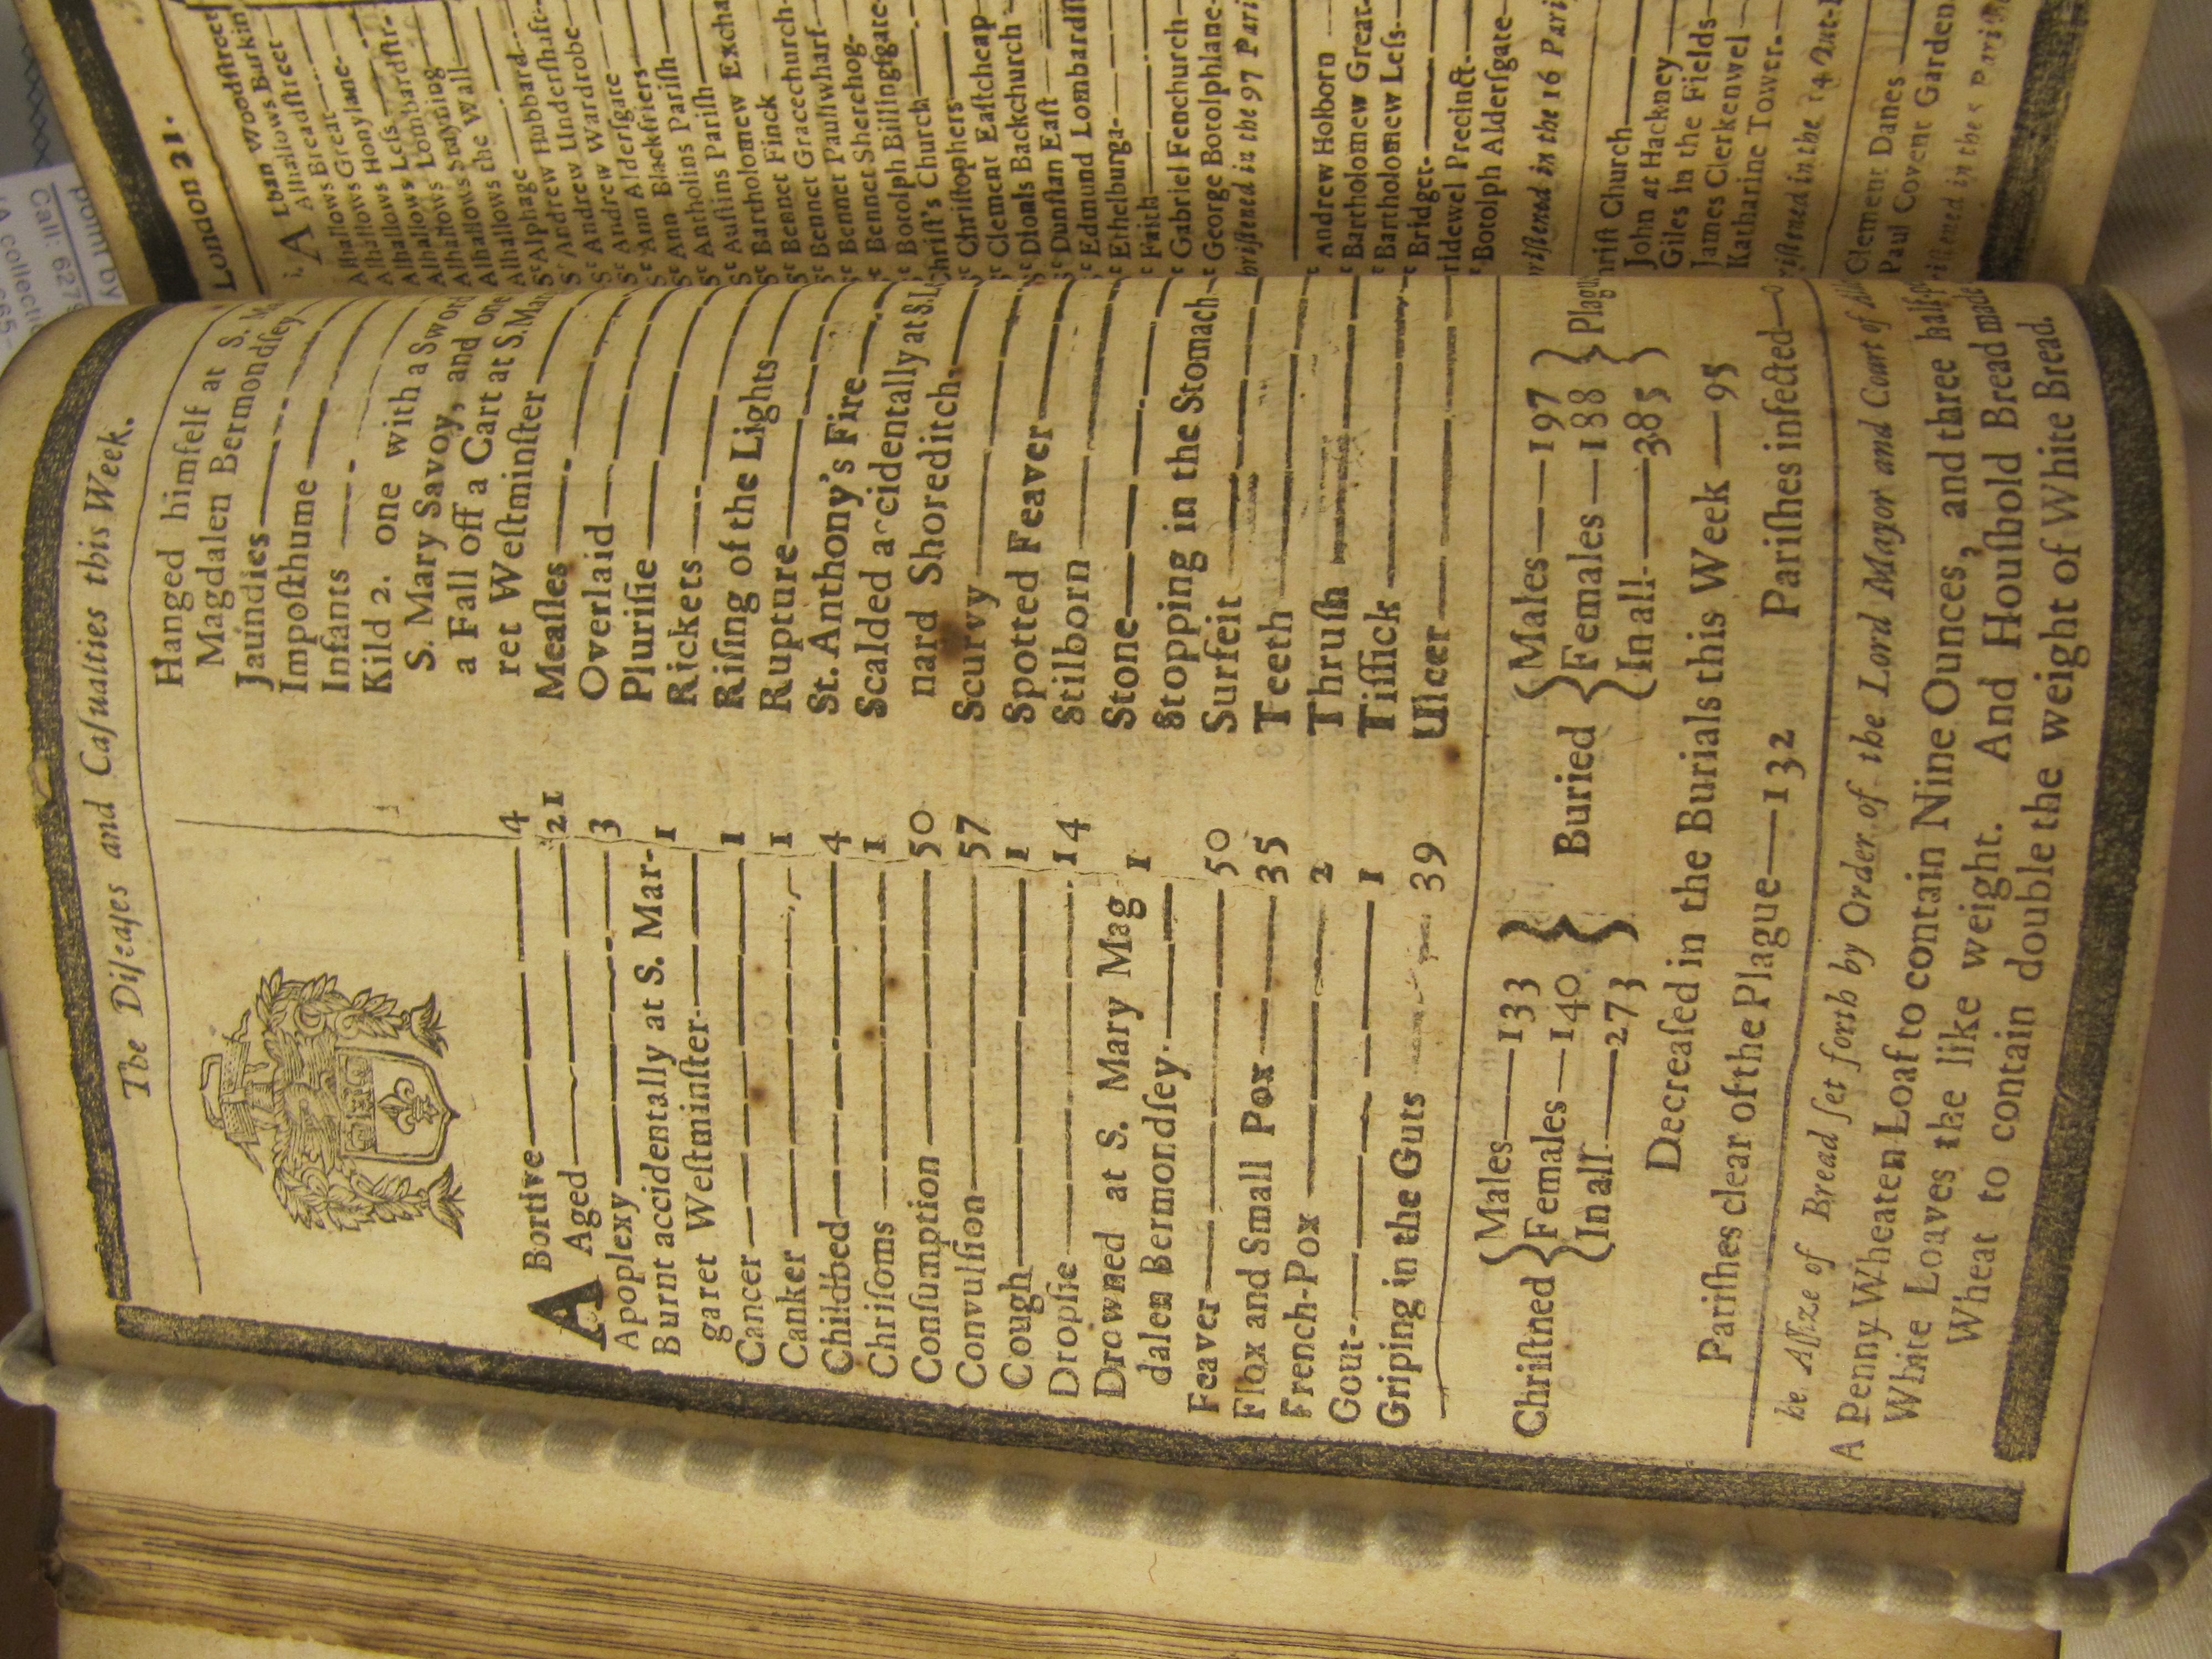 The Diſeaſes and Caſualties this Week.
Abortive 4
Aged 21
Apoplexy 3
Burnt accidentally at S. Mar-
garet Weſtminſter 1
Cancer 1
Canker 1
Childbed 4
Chriſoms 1
Conſumption 50
Convulſion 57
Cough 1
Dropſie 14
Drowned at S. Mary Mag
dalen Bermondſey 1
Feaver 50
Flox and Small Pox 35
French-Pox 2
Gout 1
Griping in the Guts 39
Hanged himſelf at S.
Magdalen Bermondſey
Jaundies
Impoſthume
Infants
Kild 2. one with a
S. Mary Savoy, and one
a Fall off a Cart at S. Mar
ret Weſtminſter
Meaſles
Overlaid
Pluriſie
Rickets
Riſing of the Lights
Rupture
St. Anthony's Fire
Scalded accidentally at S.
nard Shoreditch
Scurvy
Spotted Feaver
Stilborn
Stone
Stopping in the Stomach
Surfeit
Teeth
Thruſh
Tiſſick
Ulcer
Chriſtned { Males 133 Females 140 In all 273 }
Buried { Males 197 Females 188 In all 385 } Plag
Decreaſed in the Burials this Week 95
Pariſhes clear of the Plague 132 Pariſhes infected
he Aſſize of Bread ſet forth by Order of the Lord Mayor and Court of
A Penny Wheaten Loaf to contain Nine Ounces, and three half
White Loaves the like weight. And Houſhold Bread made
Wheat to contain double the weight of White Bread.
London 21.
ALban Woodſtreet
Alhallows Barkin
Alhallows Breadſtreet
Alhallows Great
Alhallows Honylane
Alhallows Leſs
Alhallows Lombardſtr
Alhallows Stayning
Alhallows the Wall
Sᵗ Alphage
Sᵗ Andrew Hubbard
Sᵗ Andrew Underſhaft
Sᵗ Andrew Wardrobe
Sᵗ Ann Alderſgate
Sᵗ Ann Blackfriers
Sᵗ Antholins Pariſh
Sᵗ Auſtins Pariſh
Sᵗ Bartholomew Excha
Sᵗ Bennet Finck
Sᵗ Bennet Gracechurch
Sᵗ Bennet Paulſwharf
Sᵗ Bennet Sherehog
Sᵗ Botolph Billingſgate
Chriſt's Church
Sᵗ Chriſtophers
Sᵗ Clement Eaſtcheap
Sᵗ Dionis Backchurch
Sᵗ Dunſtan Eaſt
Sᵗ Edmund Lombardſt
Sᵗ Ethelburga
Sᵗ Faith
Sᵗ Gabriel Fenchurch
Sᵗ George Botolphlane
hriſtened in the 97 Pari
Andrew Holborn
Bartholomew Great
Bartholomew Leſs
Bridget
ridewel Precinct
Botolph Alderſgate
riſtened in the 16 Pari
hriſt Church
John at Hackney
Giles in the Fields
James Clerkenwel
Katharine Tower
riſtened in the 14 Out-
Clement Danes
Paul Covent Garden
riſtened in the 5 Pariſhe
point by
Call: 627
A collecti